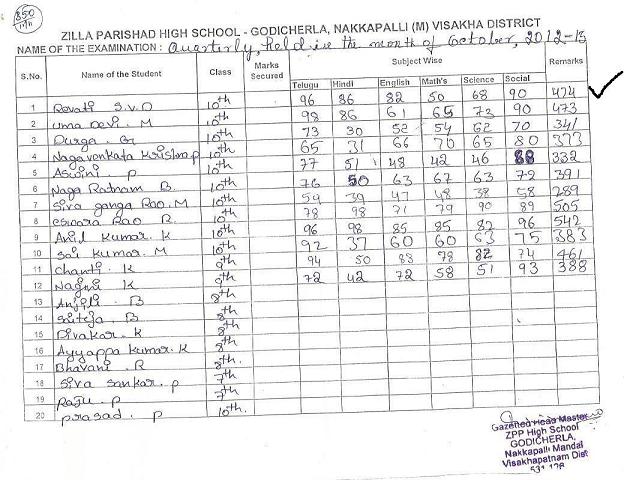 850
ZILLA PARISHAD HIGH SCHOOL - GODICHERLA, NAKKAPALLI (M) VISAKHA DISTRICT
NAME OF THE EXAMINATION : Quarterly, held in the month of October, 2012-13
S.No. Name of the Student Class Marks Secured Subject Wise Remarks
Telugu Hindi English Math's Science Social
1 Revati S.V.D 10th 96 86 82 50 68 90 474
2 Uma Devi. M 10th 98 86 61 65 73 90 473
3 Durga. Gr 10th 73 30 52 54 62 70 341
4 Nagavenkata Krishna P 10th 65 31 66 70 65 80 373
5 Aswini P 10th 77 51 48 42 46 68 332
6 Naga Ratnam B. 10th 76 50 63 67 63 72 391
7 Siva ganga Rao. M 10th 59 39 47 48 38 58 289
8 eswara Rao R. 10th 78 98 71 79 90 89 505
9 Anil Kumar. K 10th 96 98 85 85 82 96 542
10 Sai Kumar. M 10th 92 37 60 60 63 75 383
11 Chanti. K 9th 94 50 83 78 82 74 461
12 Nagini K 9th 72 42 72 58 51 93 388
13 Anjili. B 8th
14 B 8th
15 Divakar. K 8th
16 Ayyappa Kumar. K 8th
17 Bhavani. R 8th.
18 Siva Sankar. P 7th
19 Raju. P 7th
20 Prasad. P 10th.
Gazetted Head Master
ZPP High School
GODICHERLA,
Nakkapalli Mandal
Visakhapatnam Dist
531 126